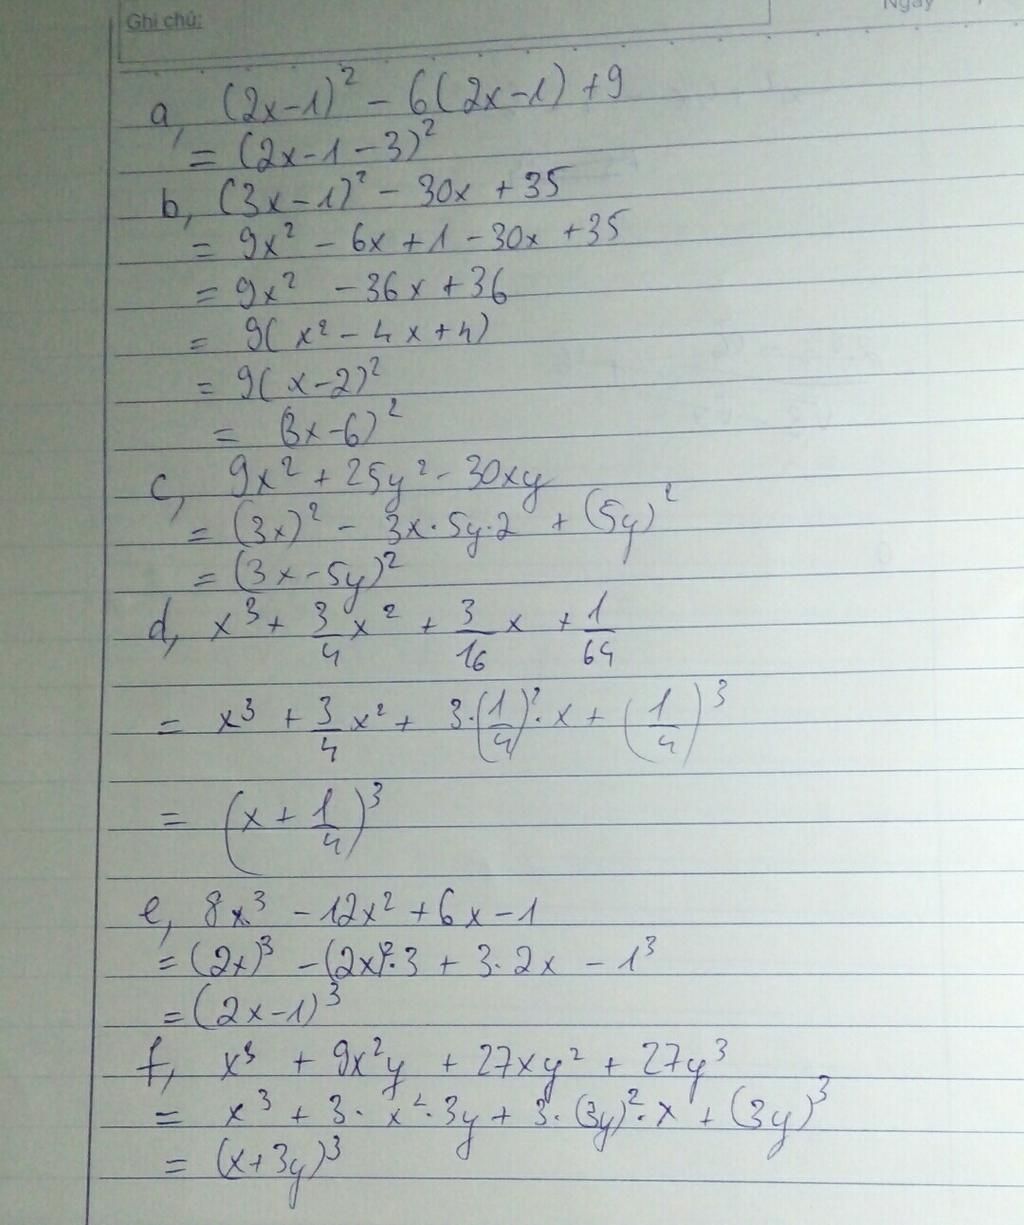 Ghi chú:
Ngày
a, (2x-1)² - 6(2x-1) +9
= (2x-1-3)²
b, (3x-1)² - 30x +35
= 9x² - 6x +1 -30x +35
= 9x² - 36x +36
= 9(x² - 4x +4)
= 9(x-2)²
= (3x-6)²
c, 9x² + 25y² - 30xy
= (3x)² - 3x·5y·2 + (5y)²
= (3x-5y)²
d, x³ + 3/4 x² + 3/16 x + 1/64
= x³ + 3/4 x² + 3·(1/4)²·x + (1/4)³
= (x + 1/4)³
e, 8x³ - 12x² + 6x - 1
= (2x)³ - (2x)²·3 + 3·2x - 1³
= (2x-1)³
f, x³ + 9x²y + 27xy² + 27y³
= x³ + 3·x²·3y + 3·(3y)²·x + (3y)³
= (x+3y)³